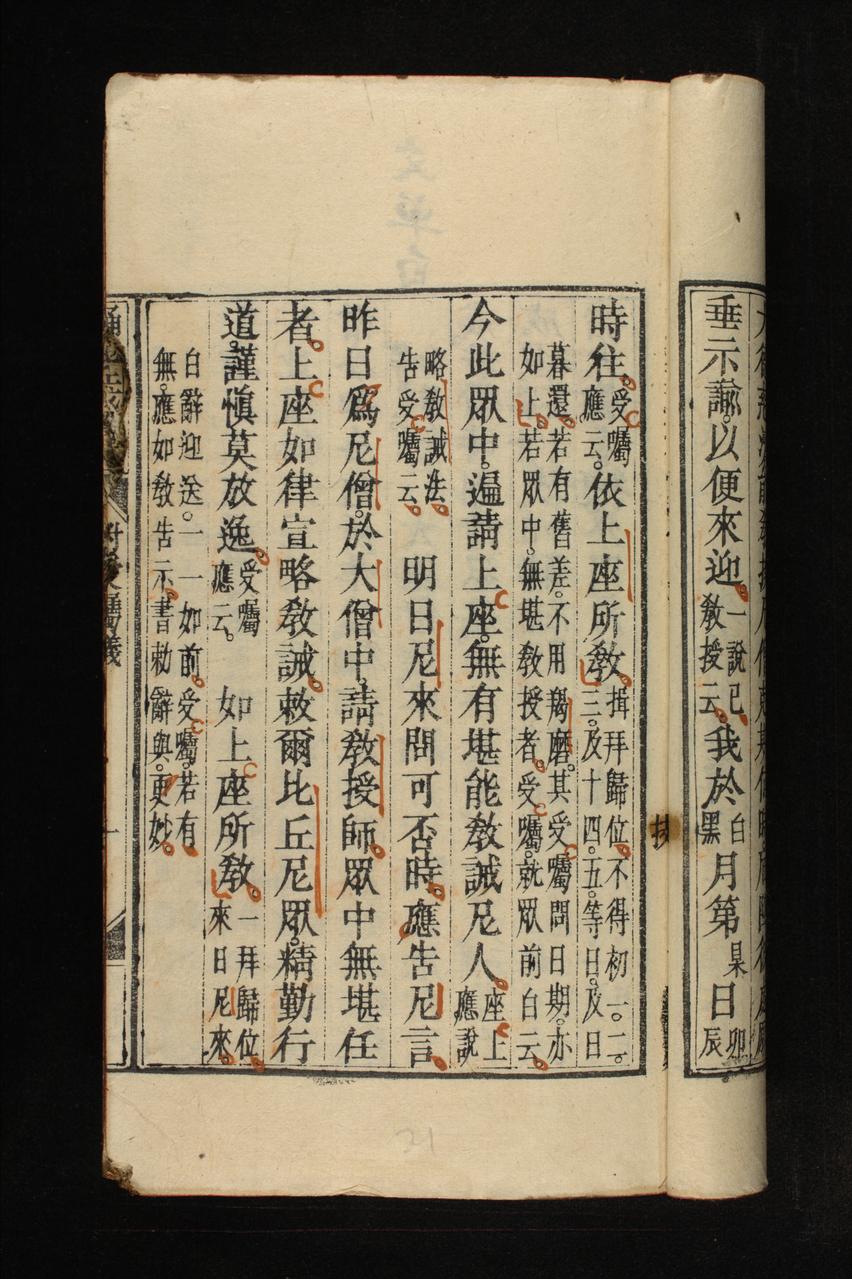 垂示諭。以便來迎。一說已。教授云。我於白黑月第某日卯辰
時往。受囑應云。依上座所教。揖拜歸位。不得初一。二。三。及十四。五。等日。及日
暮還。若有舊差。不用羯磨。其受囑問日期。亦如上。若眾中。無堪教授者。受囑。就眾前白云。
今此眾中。遍請上座。無有堪能教誡尼人。座上應說
略教誡法。告受囑云。明日尼來問可否時。應告尼言。
昨日為尼僧。於大僧中。請教授師。眾中無堪任
者。上座如律宣略教誡。敕爾比丘尼眾。精勤行
道。謹慎莫放逸。受囑應云。如上座所教。一拜歸位。來日尼來。
白辭迎送。一一如前。受囑。若有無。應如教告示。書勅辭與。更妙。
附受囑儀
21